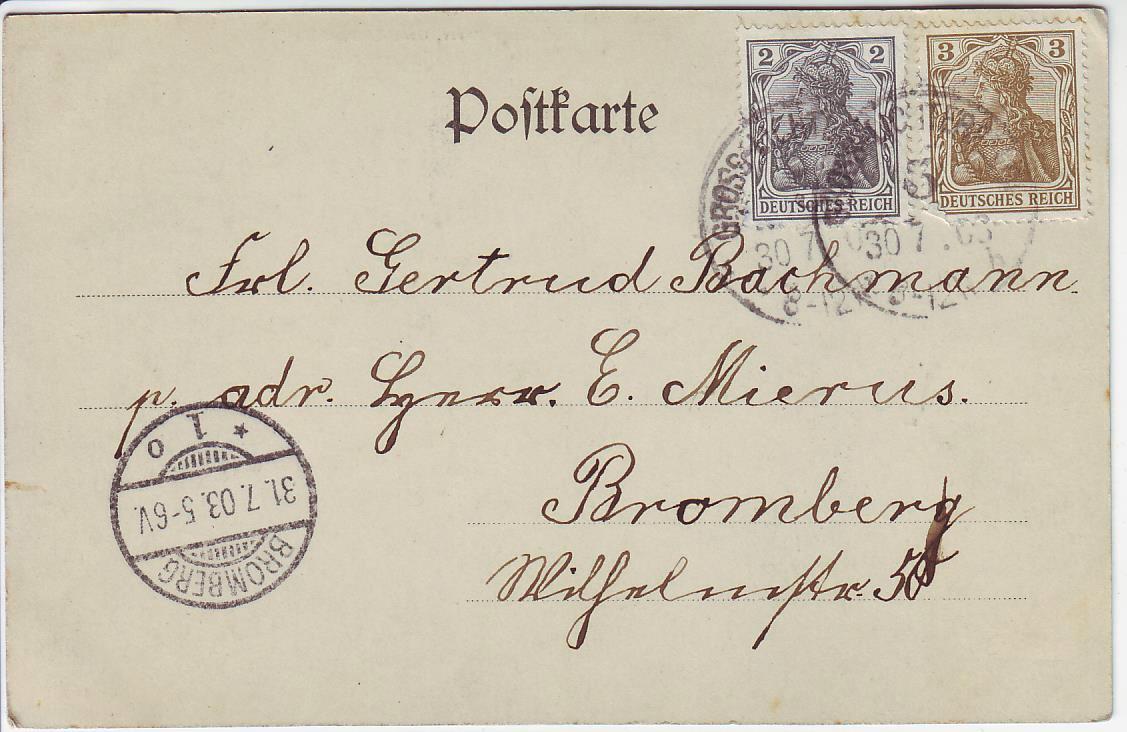 Postkarte
2 2
DEUTSCHES REICH
3 3
DEUTSCHES REICH
30 7
8-12
30 7 . 03
8-12
Frl. Gertrud Bachmann
p. adr. Herr. E. Mierus.
Bromberg
Wilhelmstr. 58
* 1 o
31.7.03.5-6V.
BROMBERG